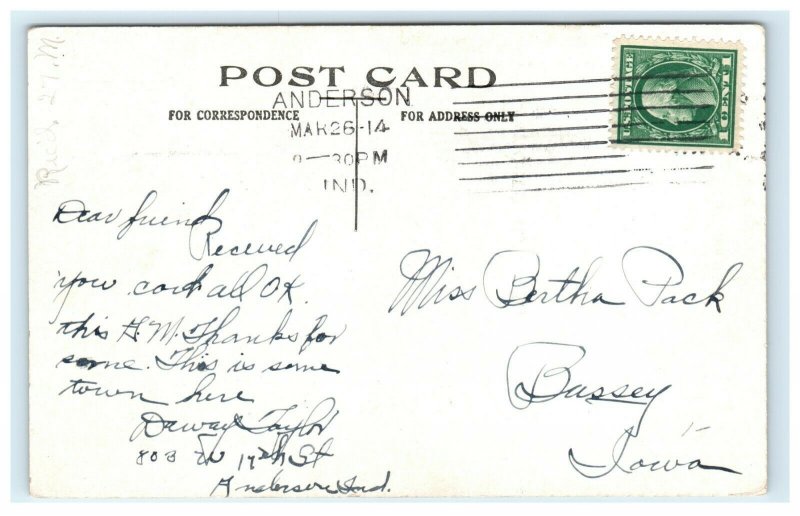 Rec'd 27. M.
POST CARD
FOR CORRESPONDENCE
FOR ADDRESS ONLY
ANDERSON
MAR 26-14
30 PM
IND.
U.S. POSTAGE
1 CENT 1
Dear friend
Received
you card all OK.
this A.M. Thanks for
same. This is some
town here
Taylor
803 W 17th St
Anderson Ind.
Miss Bertha Pack
Bussey
Iowa